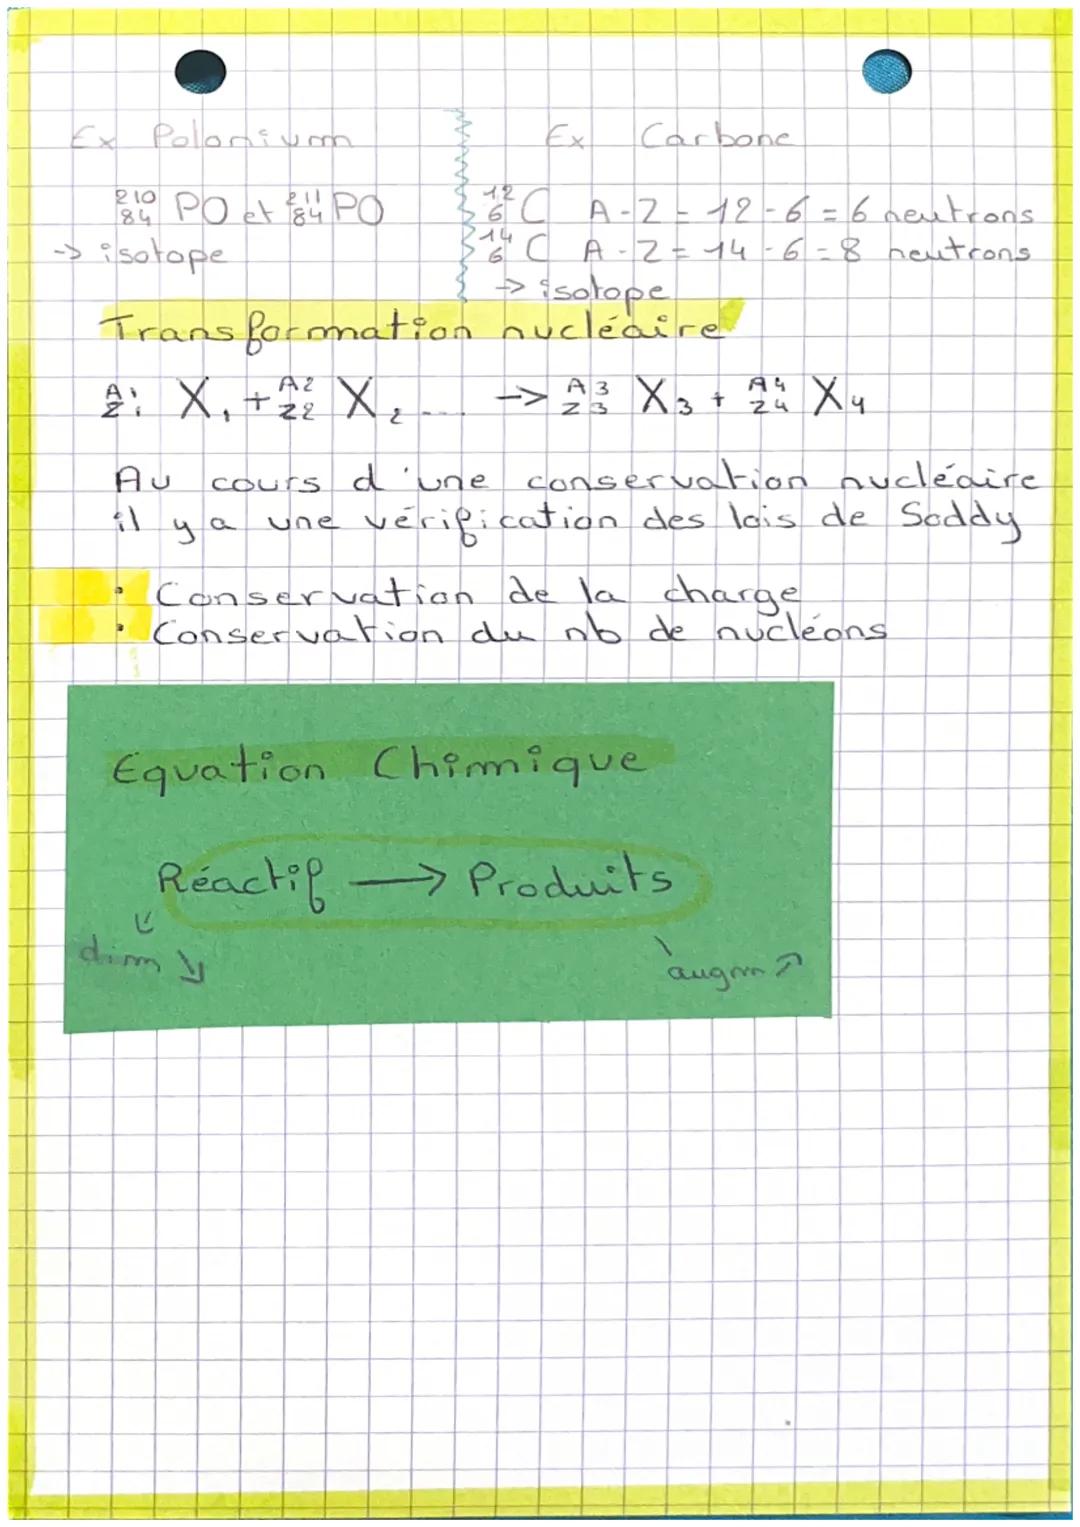 Ex Polonium
²¹⁰₈₄ PO et ²¹¹₈₄ PO
-> isotope
Ex Carbone
¹²₆ C A-Z = 12-6 = 6 neutrons
¹⁴₆ C A-Z = 14-6 = 8 neutrons
-> isotope
Transformation nucléaire
A1 Z1 X1 + A2 Z2 X2 ... -> A3 Z3 X3 + A4 Z4 X4
Au cours d'une conservation nucléaire
il y a une vérification des lois de Soddy
• Conservation de la charge
• Conservation du nb de nucléons
Equation Chimique
Réactif → Produits
dim ↘
augm ↗